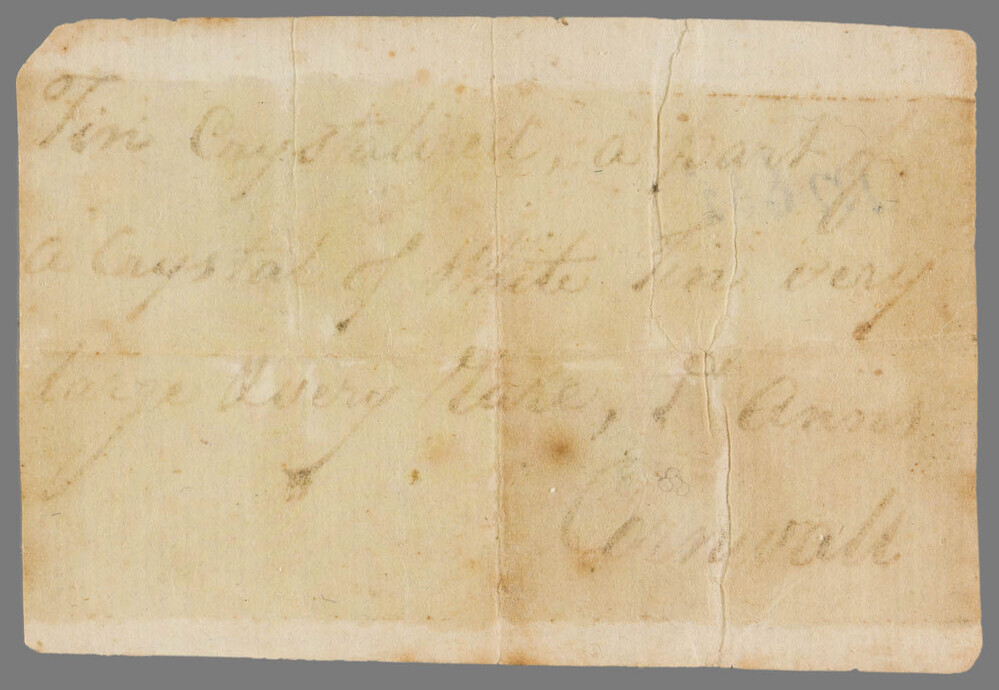 Tin Crystalized, a part of
a Crystal of White Tin very
large & very Rare, St Anns
Cornwall